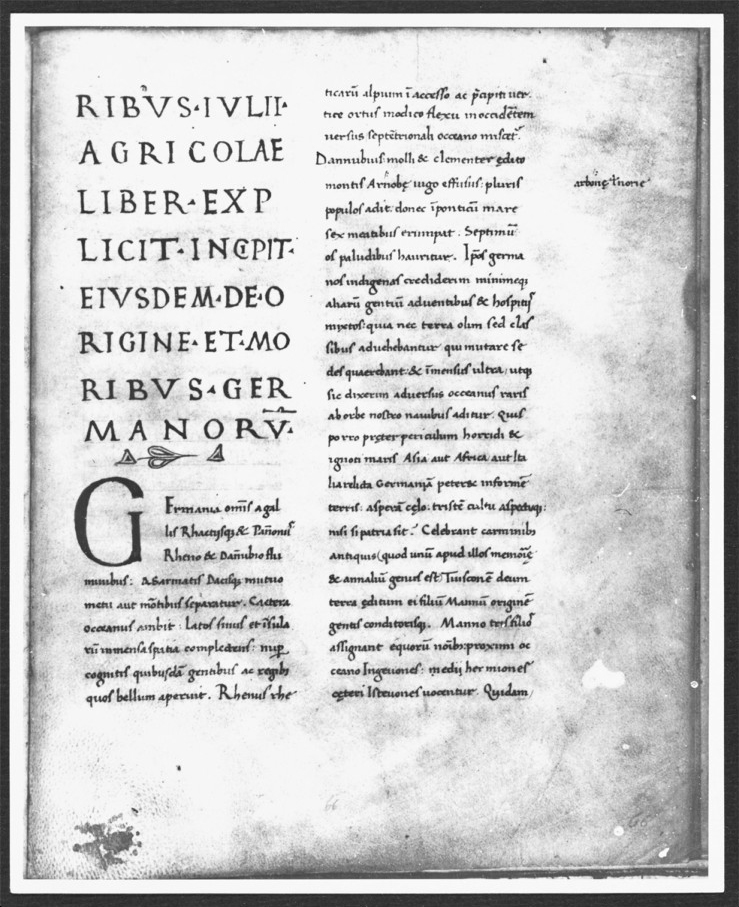 RIBVS·IVLII·
AGRICOLAE
LIBER·EXP
LICIT·INCIPIT·
EIVSDEM·DE·O
RIGINE·ET·MO
RIBVS·GER
MANORV̅·
Germania omīs a gal
lis Rhaetijsq; & Pañonijs
Rheno & Dañubio flu
minibus: a Sarmatis Dacisq; mutuo
metu aut mōtibus separatur. Caetera
occeanus ambit: latos sinus et īsula
rū immensa spatia complectens: nup̱
cognitis quibusdā gentibus ac regib;
quos bellum aperuit. Rhenus rhe
ticarū alpium ī accesso ac p̄cipiti ver
tice ortus modico flexu in occidētem
versus septētrionali occeano miscet᷑.
Dannubius molli & clementer ędito
montis Arnobę iugo effusus: pluris
populos adit: donec ī ponticū mare
sex meatibus erumpat. Septimū
os paludibus hauritur. Ip̄os germa
nos indigenas crediderim minimeq;
aliarū gentiū adventibus & hospitijs
mixtos: quia nec terra olim sed clas
sibus advehebantur qui mutare se
des quaerebant: & īmensus ultra: utq;
sic dixerim adversus occeanus raris
ab orbe nostro navibus aditur. Quis
porro pręter periculum horridi &
ignoti maris Asia aut Africa aut Ita
lia relicta Germaniā peteret informē
terris: asperā cęlo: tristē cultu aspectuq;
nisi si patria sit? Celebrant carminib;
antiquis (quod unū apud illos memorię
& annaliū genus est) Tuisconē deum
terra ęditum ei filiū Mannū originē
gentis conditorisq;. Manno tres filios
assignant equorū noīb; proximi oc
ceano Ingevones: medij hermiones
cęteri Istevones vocentur. Quidam
arbonę ł norię